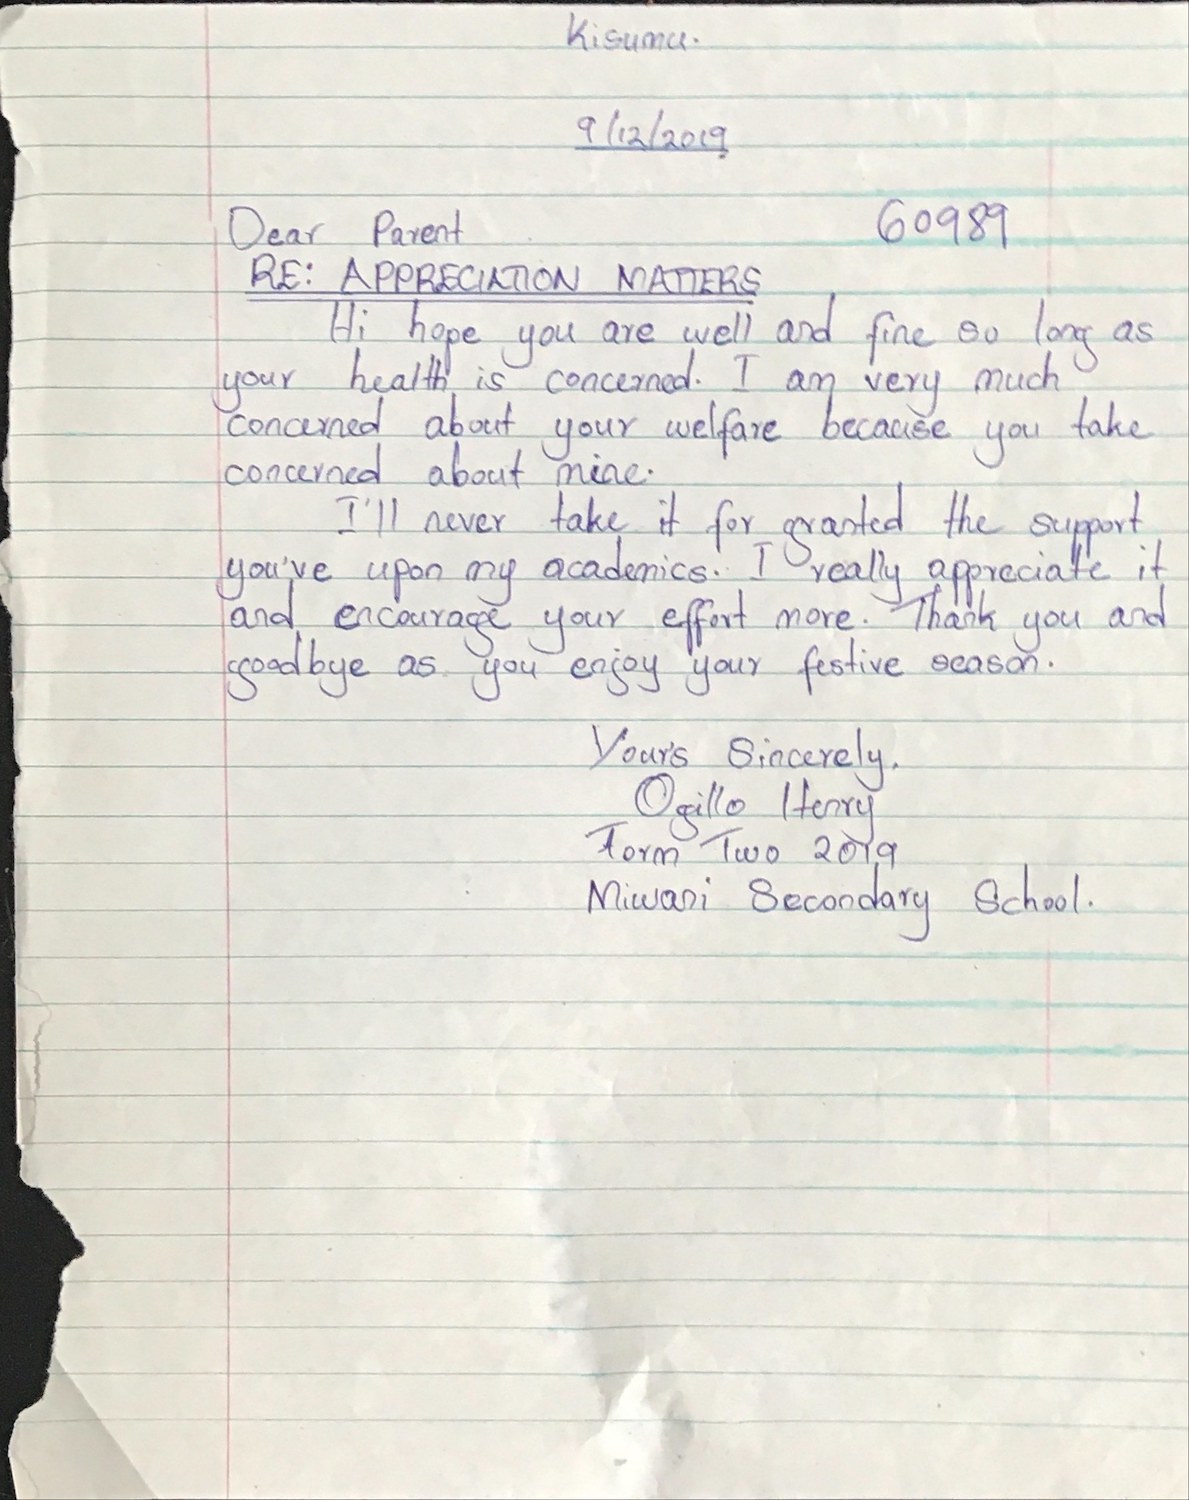 Kisumu.
9/12/2019
Dear Parent 60989
RE: APPRECIATION MATTERS
Hi hope you are well and fine so long as
your health is concerned. I am very much
concerned about your welfare because you take
concerned about mine.
I'll never take it for granted the support
you've upon my academics. I really appreciate it
and encourage your effort more. Thank you and
goodbye as you enjoy your festive season.
Yours Sincerely.
Ogillo Henry
Form Two 2019
Miwani Secondary School.